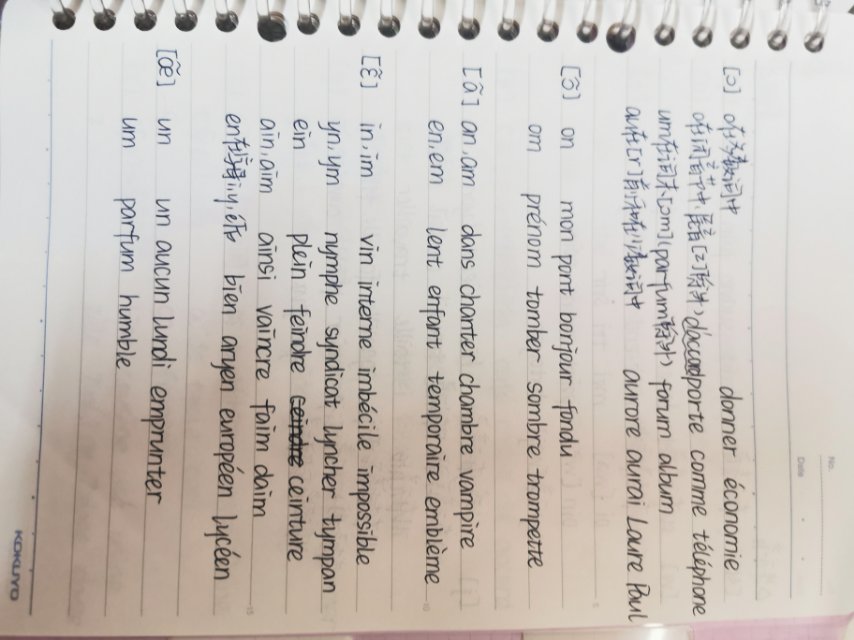 No.
Date
[ɔ] o在多数词中 donner économie
o在闭音节中, [z] d'accord porte comme téléphone
um在词末[ɔm](parfum除外) forum album
au在[r]前,和在少数词中 aurore aurai Laure Paul
[ɔ̃] on mon pont bonjour fondu
om prénom tomber sombre trompette
[ɑ̃] an,am dans chanter chambre vampire
en,em lent enfant temporaire emblème
[ɛ̃] in,im vin interne imbécile impossible
yn,ym nymphe syndicat lyncher tympan
ein plein feindre ceinture
ain,aim ainsi vaincre faim daim
en在字母i,y,é后 bien aryen européen lycéen
[œ̃] un un aucun lundi emprunter
um parfum humble
KOKUYO